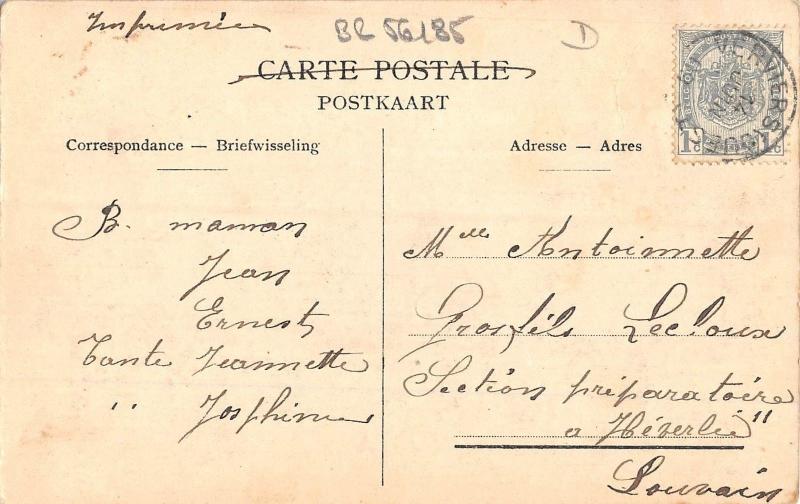 Imprimée
BR 56185
D
CARTE POSTALE
POSTKAART
Correspondance — Briefwisseling
Adresse — Adres
VERVIERS
1c 1c
B. maman
Jean
Ernest
Tante Jeannette
" Josphine
Mlle Antoinnette
Grosfils Lecloux
Section préparatoire
a Héverlé"
Louvain